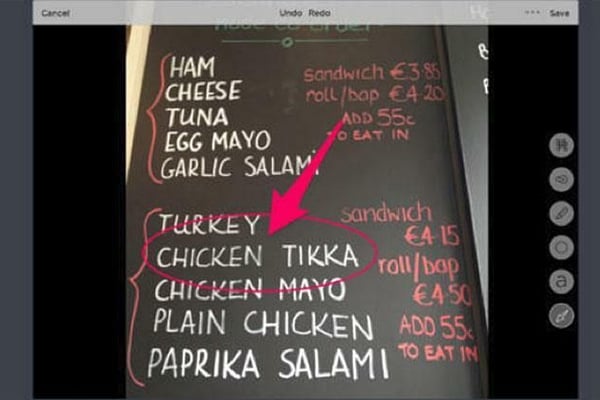 Cancel
Undo Redo
Save
made to order
HAM
CHEESE
TUNA
EGG MAYO
GARLIC SALAMI
sandwich €3.85
roll/bap €4.20
ADD 55c
TO EAT IN
TURKEY
CHICKEN TIKKA
CHICKEN MAYO
PLAIN CHICKEN
PAPRIKA SALAMI
sandwich
€4.15
roll/bap
€4.50
ADD 55c
TO EAT IN
a